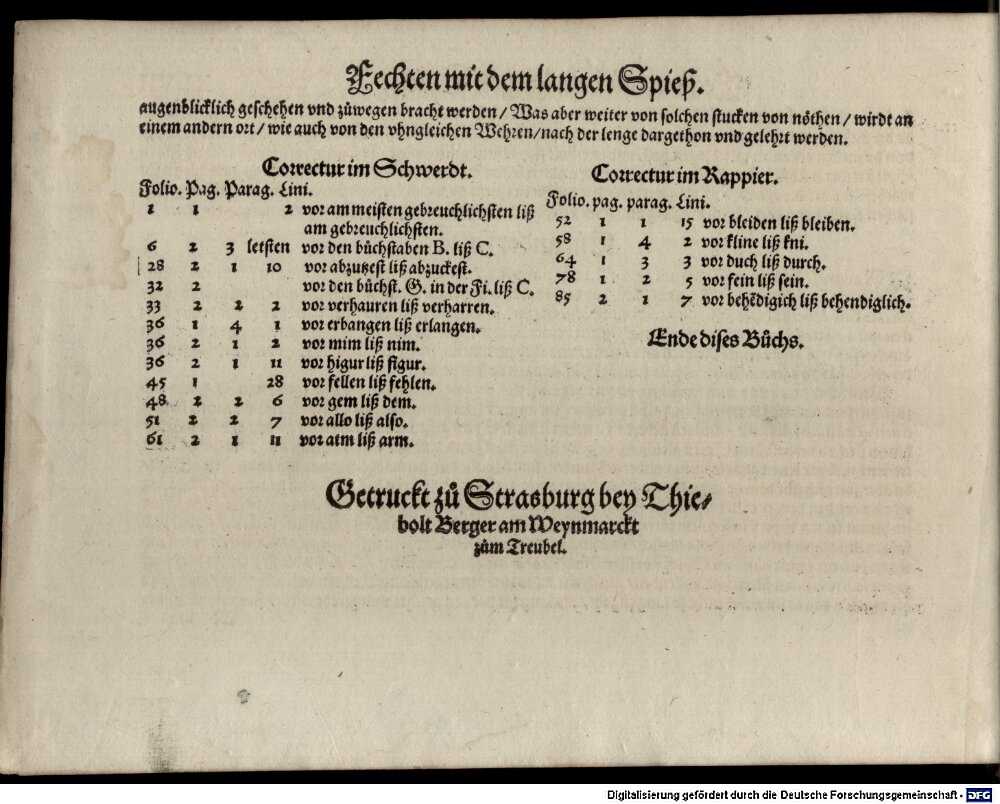 Fechten mit dem langen Spieß.
augenblicklich geschehen vnd zůwegen bracht werden / Was aber weiter von solchen stucken von nöthen / wirdt an
einem andern ort / wie auch von den vhngleichen Wehren / nach der lenge dargethon vnd gelehrt werden.
Correctur im Schwerdt.
Folio. Pag. Parag. Lini.
1 1 2 vor am meisten gebreuchlichsten liß
am gebreuchlichsten.
6 2 3 letsten vor den bůchstaben B. liß C.
28 2 1 10 vor abzutzest liß abzuckest.
32 2 vor den bůchst. G. in der Fi. liß C.
33 2 2 2 vor verhauren liß verharren.
36 1 4 1 vor erbangen liß erlangen.
36 2 1 2 vor mim liß nim.
36 2 1 11 vor higur liß figur.
45 1 28 vor fellen liß fehlen.
48 2 2 6 vor gem liß dem.
51 2 2 7 vor allo liß also.
61 2 1 11 vor atm liß arm.
Correctur im Rappier.
Folio. pag. parag. Lini.
52 1 1 15 vor bleiden liß bleiben.
58 1 4 2 vor kline liß kni.
64 1 3 3 vor duch liß durch.
78 1 2 5 vor fein liß sein.
85 2 1 7 vor behēdigich liß behendiglich.
Ende dises Bůchs.
Getruckt zů Strasburg bey Thie-
bolt Berger am Weynmarckt
zům Treubel.
Digitalisierung gefördert durch die Deutsche Forschungsgemeinschaft - DFG